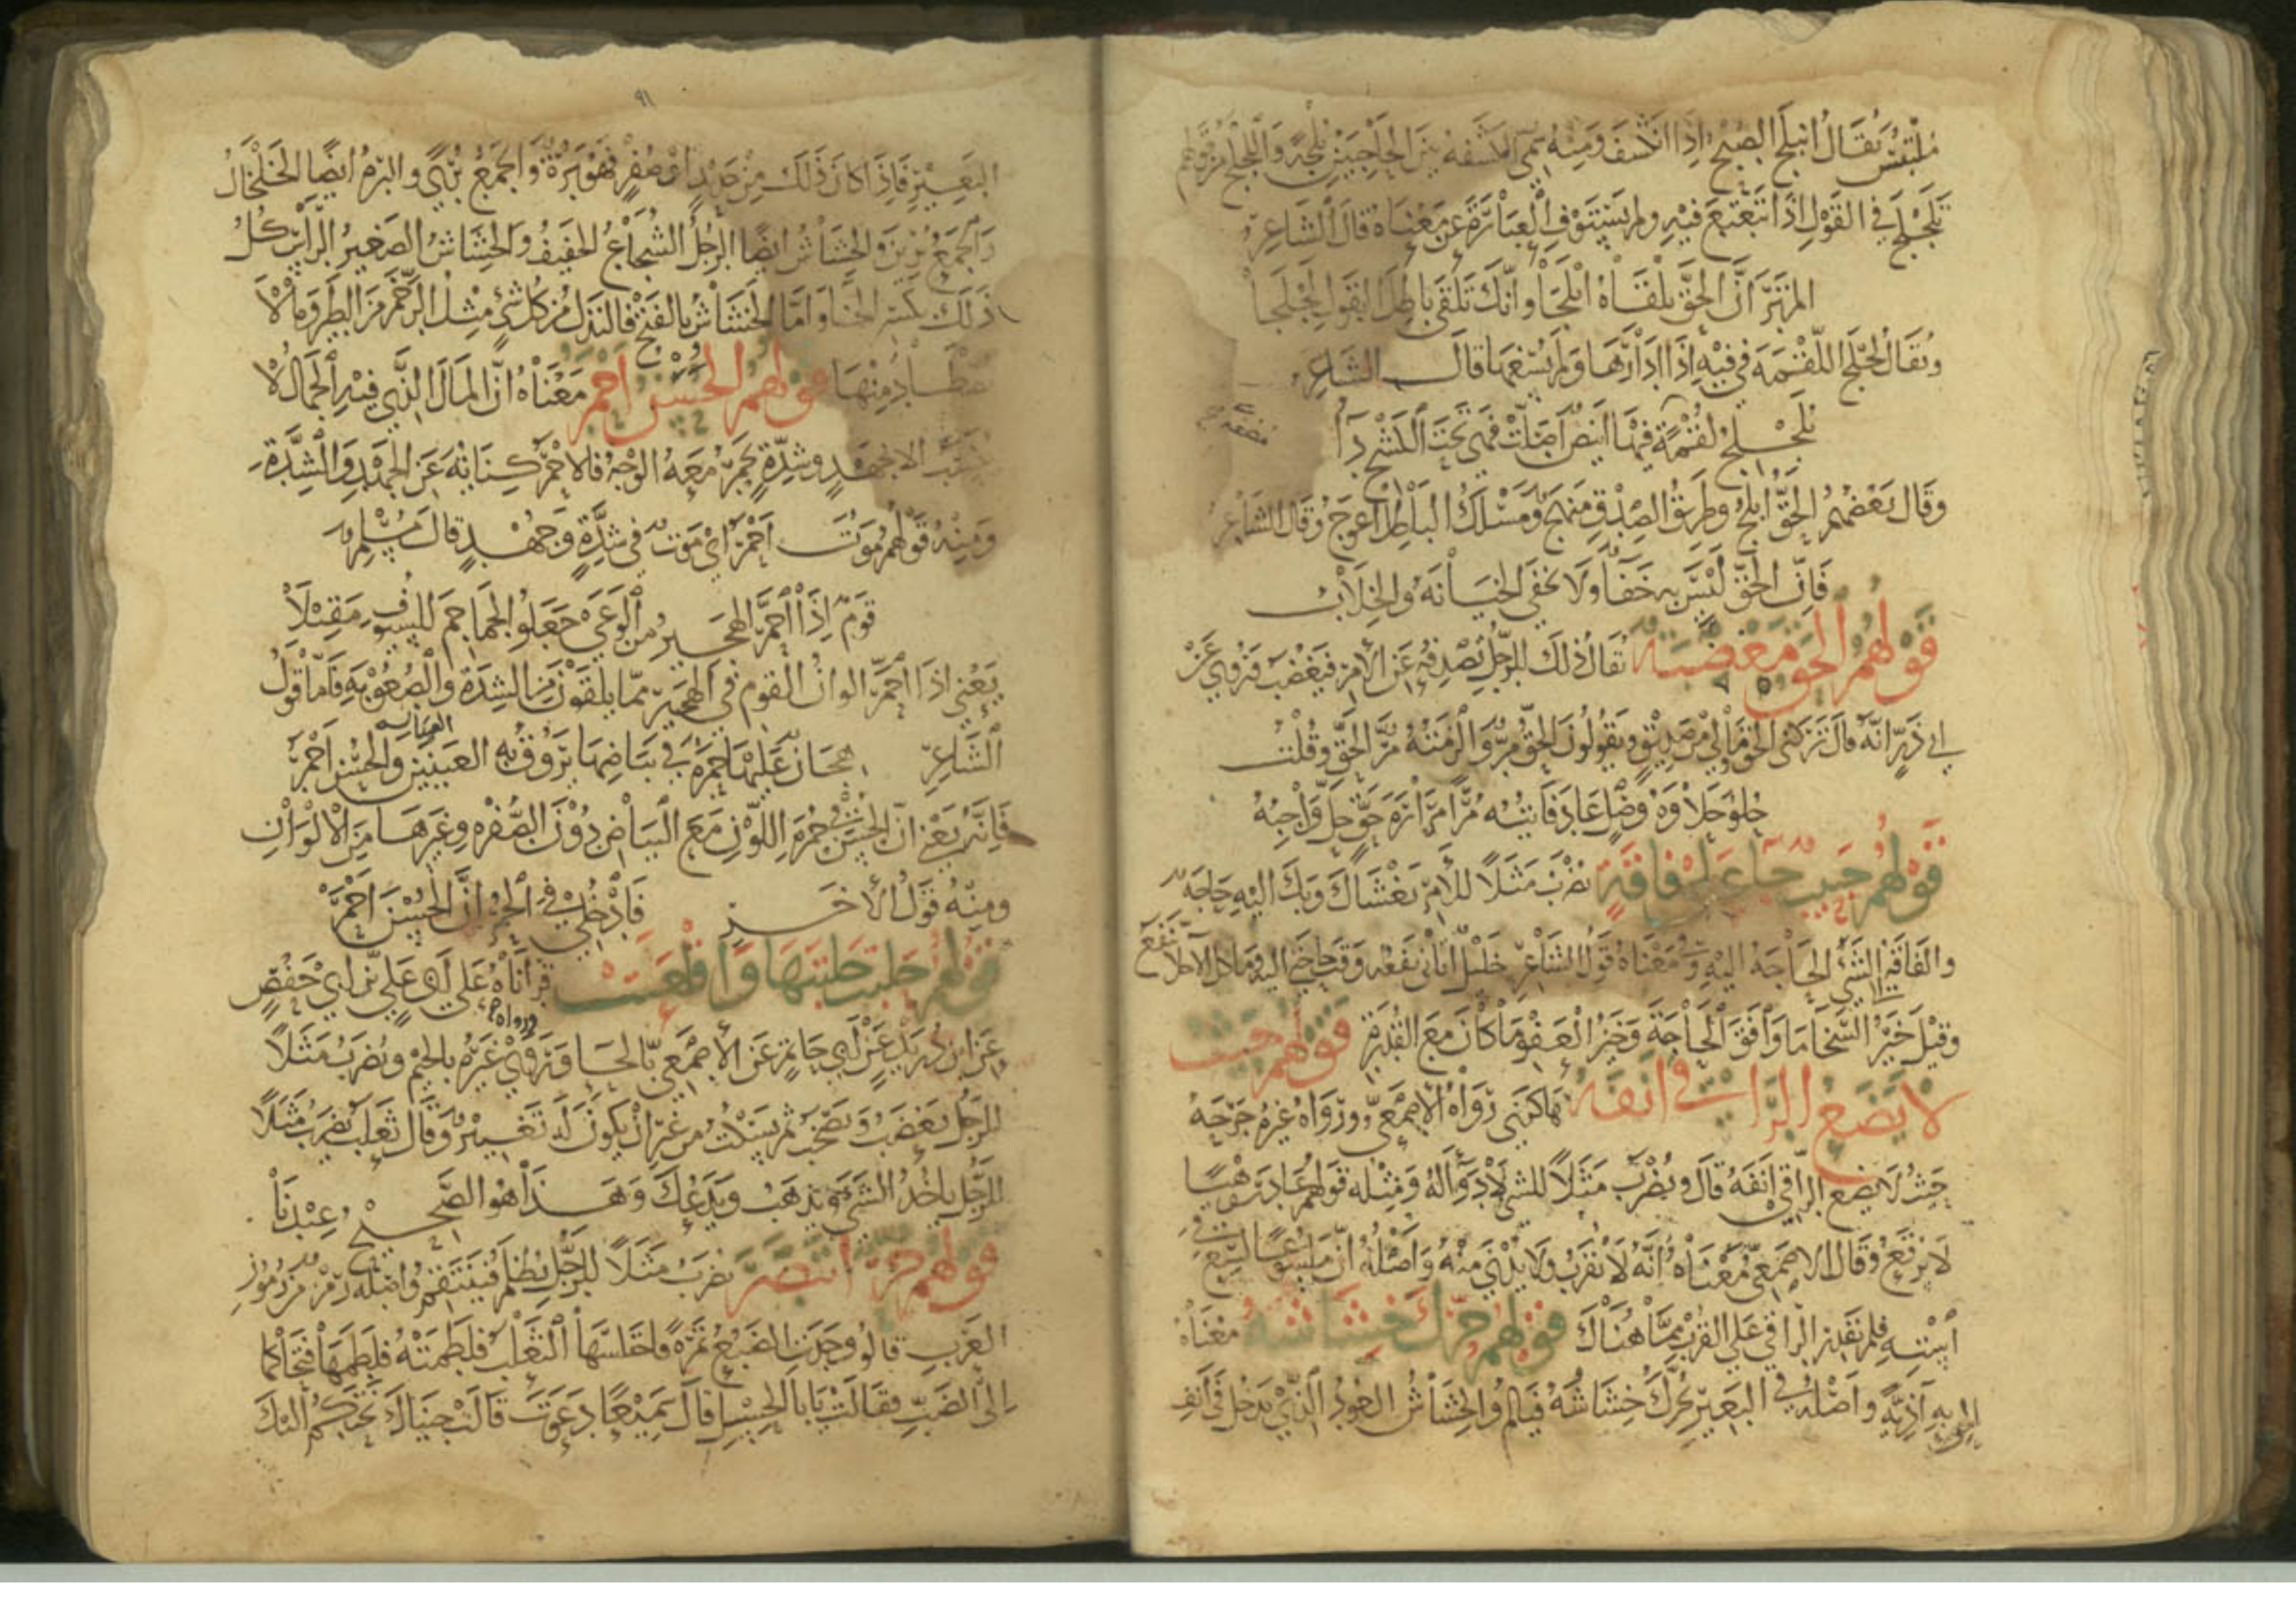 ملتبس يقال انبلج الصبح اذا انكشف ومنه سمى الكشفه بين الحاجبين بلجة واللجلج من قولهم
تلجلج في القول اذا تتعتع فيه ولم يستوف العبارة عن معناه قال الشاعر
الم تر ان الحق تلقاه ابلجا وانك تلقى باطل القول لجلجا
ويقال لجلج اللقمة في فيه اذا ادارها ولم يسغها قال الشاعر
تلجلج مضغة فيها انيض اصلت فهى تحت الكشح داء
وقال بعضهم الحق ابلج وطريق الصدق منهج ومسلك الباطل اعوج وقال الشاعر
فان الحق ليس به خفاء ولا تخفى الخيانة والخلاب
قولهم الحق مغضبة يقال ذلك للرجل تصدقه عن الامر فيغضب وروي عن
ابي ذر انه قال تركني الحق ومالي من صديق ويقولون الحق مر والزمته مر الحق وقلت
قولهم حبيب جاء على فاقة يضرب مثلا للامر يغشاك وبك اليه حاجة
والفاقة الحاجة الى الشئ ومعناه قول الشاعر
وقيل خير السخا ما وافق الحاجة وخير العفو ما كان مع القدرة قولهم حيث
لا يضع الراقي انفه هاكني رواه الاصمعي ورواه غيره جرحه
حيث لا يضع الراقي انفه قال ويضرب مثلا للشئ لا دواء له ومثله قولهم غادر وهيا
لا يرقع وقال الاصمعي معناه انه لا يقرب ولا يدنى منه واصله ان ملسوعا لسع في
استه فلم يقدر الراقي على القرب مما هناك قولهم حرك خشاشه معناه
واصله في البعير تحرك خشاشه فيالم والخشاش العود الذي يدخل في انف
٩١
البعير فاذا كان ذلك من حديد او صفر فهو برة والجمع برى والبرة ايضا الخلخال
والجمع برين والخشاش ايضا الرجل الشجاع الخفيف والخشاش الصغير الراس كل
ذلك بكسر الخاء واما الخشاش بالفتح فالنذل من كل شئ مثل الرخم من الطير وما لا
يصطاد منها قولهم الحسن احمر معناه ان المال الذي فيه الجمال لا
يكتسب الا بجهد وشدة يحمر معه الوجه فالاحمر كناية عن الجهد والشدة
ومنه قولهم موت احمر اي موت في شدة وجهد قال مسلم
قوم اذا احمر الهجير من الوغى جعلوا الجماجم للسيوف مقيلا
يعني اذا احمر الوان القوم في الهجير مما يلقون من الشدة والصعوبة فاما قول
الشاعر هجان عليها حمرة في بياضها تروق به العينين والحسن احمر
فانه يعني ان الحسن في حمرة اللون مع البياض دون الصفرة وغيرها من الالوان
ومنه قول الاخر فادخلي في الحمر ان الحسن احمر
قولهم حلبت حلبتها واقلعت قراناه على ابي علي بن ابي حفص
ورواه
عن ابن دريد عن ابي حاتم عن الاصمعي بالحا وروي غيره بالجيم ويضرب مثلا
للرجل يغضب ويصخب ثم يسكت من غير ان يكون له تغيير وقال ثعلب يضرب مثلا
للرجل ياخذ الشئ ويذهب ويدعك وهذا هو الصحيح عندنا
قولهم حر انتصر يضرب مثلا للرجل يظلم فينتقم واصله رمز من رموز
العرب قالوا وجدت الضبع تمرة فاختلسها الثعلب فلطمته فلطمها فتحاكما
الى الضب فقالت يا با الحسل قال سميعا دعوت قالت جيناك نحتكم اليك